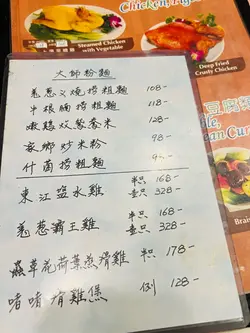 Chicken, Pige
Steamed Chicken
with Vegetable
Deep Fried
Crusty Chicken
大師粉麵
羗葱叉燒撈粗麵 108-
牛碩腩撈粗麵 118-
嫩鷄炆鴛鴦米 128-
家鄉炒米粉 98-
什菌撈粗麵
東江鹽水雞 半只 168-
壹只 328-
羗葱霸王雞 半只 168-
壹只 328-
蟲草花荷葉蒸滑雞 半只 178-
啫啫滑雞煲 例 128-
豆腐
ean Cur
Brais